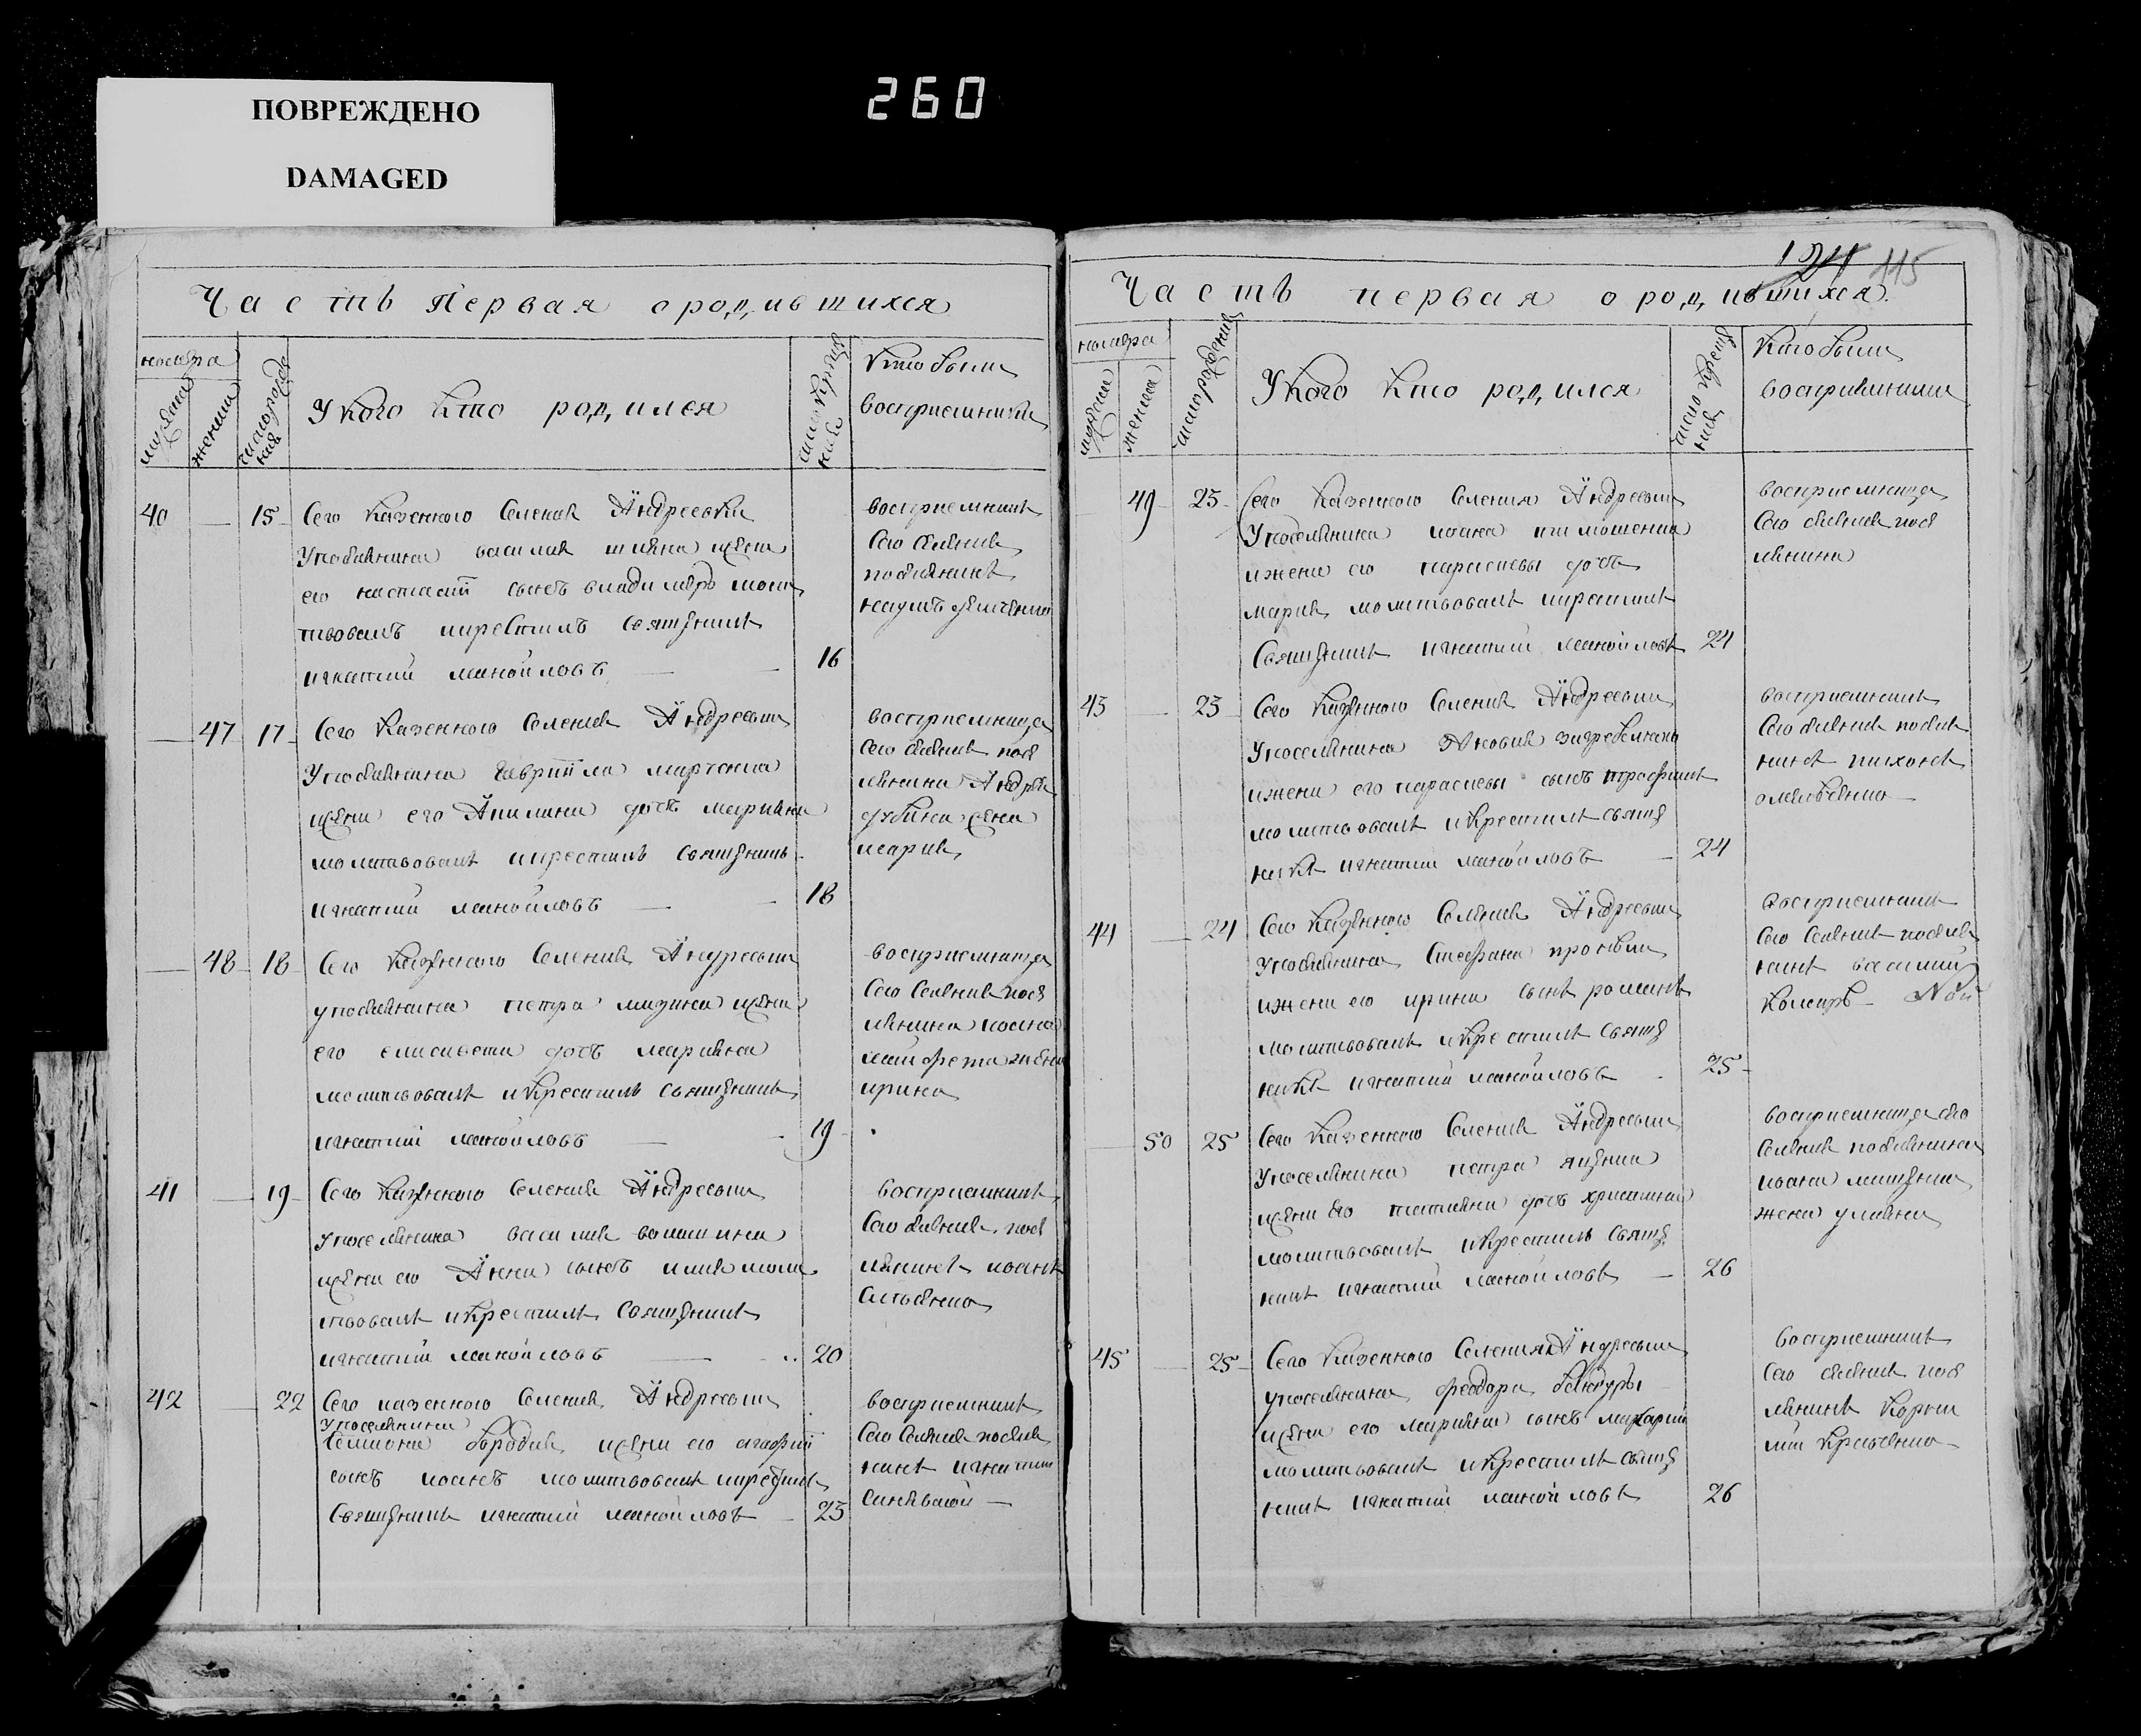 ПОВРЕЖДЕНО
DAMAGED
260
Часть Первая о родившихся
номера
мужеска
женска
число рожде
ния
У кого кто родился
число креще
ния
Кто были
восприемники
40 15 Сего Казенного Селения Андреевки
Упоселянина василия жены
его настасии сынъ владимиръ моли
твовалъ икрестилъ Священникъ
игнатий манойловъ 16
восприемникъ
Сего селения
поселянинъ
наумъ
47 17 Сего Казенного Селения Андреевки
Упоселянина Гавриила марченка
жены его Акилины дочь марияна
молитвовалъ икрестилъ Священникъ
игнатий манойловъ 18
восприемница
Сего селения посе
лянина Андрея
жена
мария
48 18 Сего Казенного Селения Андреевки
упоселянина петра мизина жены
его елисаветы дочь марияна
молитвовалъ икрестилъ Священникъ
игнатий манойловъ 19
восприемница
Сего Селения посе
лянина иоана
жена
ирина
41 19 Сего Казенного Селения Андреевки
упоселянина василия
жены его Анны сынъ илия моли
твовалъ икрестилъ Священникъ
игнатий манойловъ 20
восприемникъ
Сего селения посе
лянинъ иоанъ
42 22 Сего казенного Селения Андреевки
Упоселянина
Симиона жены его агафии
сынъ иоанъ молитвовалъ икрестилъ
Священникъ игнатий манойловъ 23
восприемникъ
Сего Селения поселя
нинъ игнатий
121 115
Часть первая о родившихся.
номера
мужеска
женска
число рождения
У кого кто родился
число креще
ния
Кто были
восприемники
49 23 Сего Казенного Селения Андреевки
Упоселянина иоана
ижены его параскевы дочь
мария молитвовалъ икрестилъ
Священникъ игнатий манойловъ 24
восприемница
Сего селения посе
лянина
43 23 Сего Казенного Селения Андреевки
Упоселянина Якова
ижены его параскевы сынъ трофимъ
молитвовалъ икрестилъ Священ
никъ игнатий манойловъ 24
восприемникъ
Сего селения поселя
нинъ тихонъ
омельченко
44 24 Сего Казенного Селения Андреевки
Упоселянина Стефана
ижены его ирины сынъ романъ
молитвовалъ икрестилъ Священ
никъ игнатий манойловъ 25
восприемникъ
Сего Селения поселя
нинъ василий
Комаръ
50 25 Сего Казенного Селения Андреевки
Упоселянина петра яценка
жены его татияны дочь христина
молитвовалъ икрестилъ Священ
никъ игнатий манойловъ 26
восприемница сего
Селения поселянина
иоана
жена улияна
45 25 Сего Казенного Селения Андреевки
упоселянина феодора бандуры
жены его марияны сынъ макарий
молитвовалъ икрестилъ Священ
никъ игнатий манойловъ 26
восприемникъ
Сего селения посе
лянинъ Корни
лий Кравченко